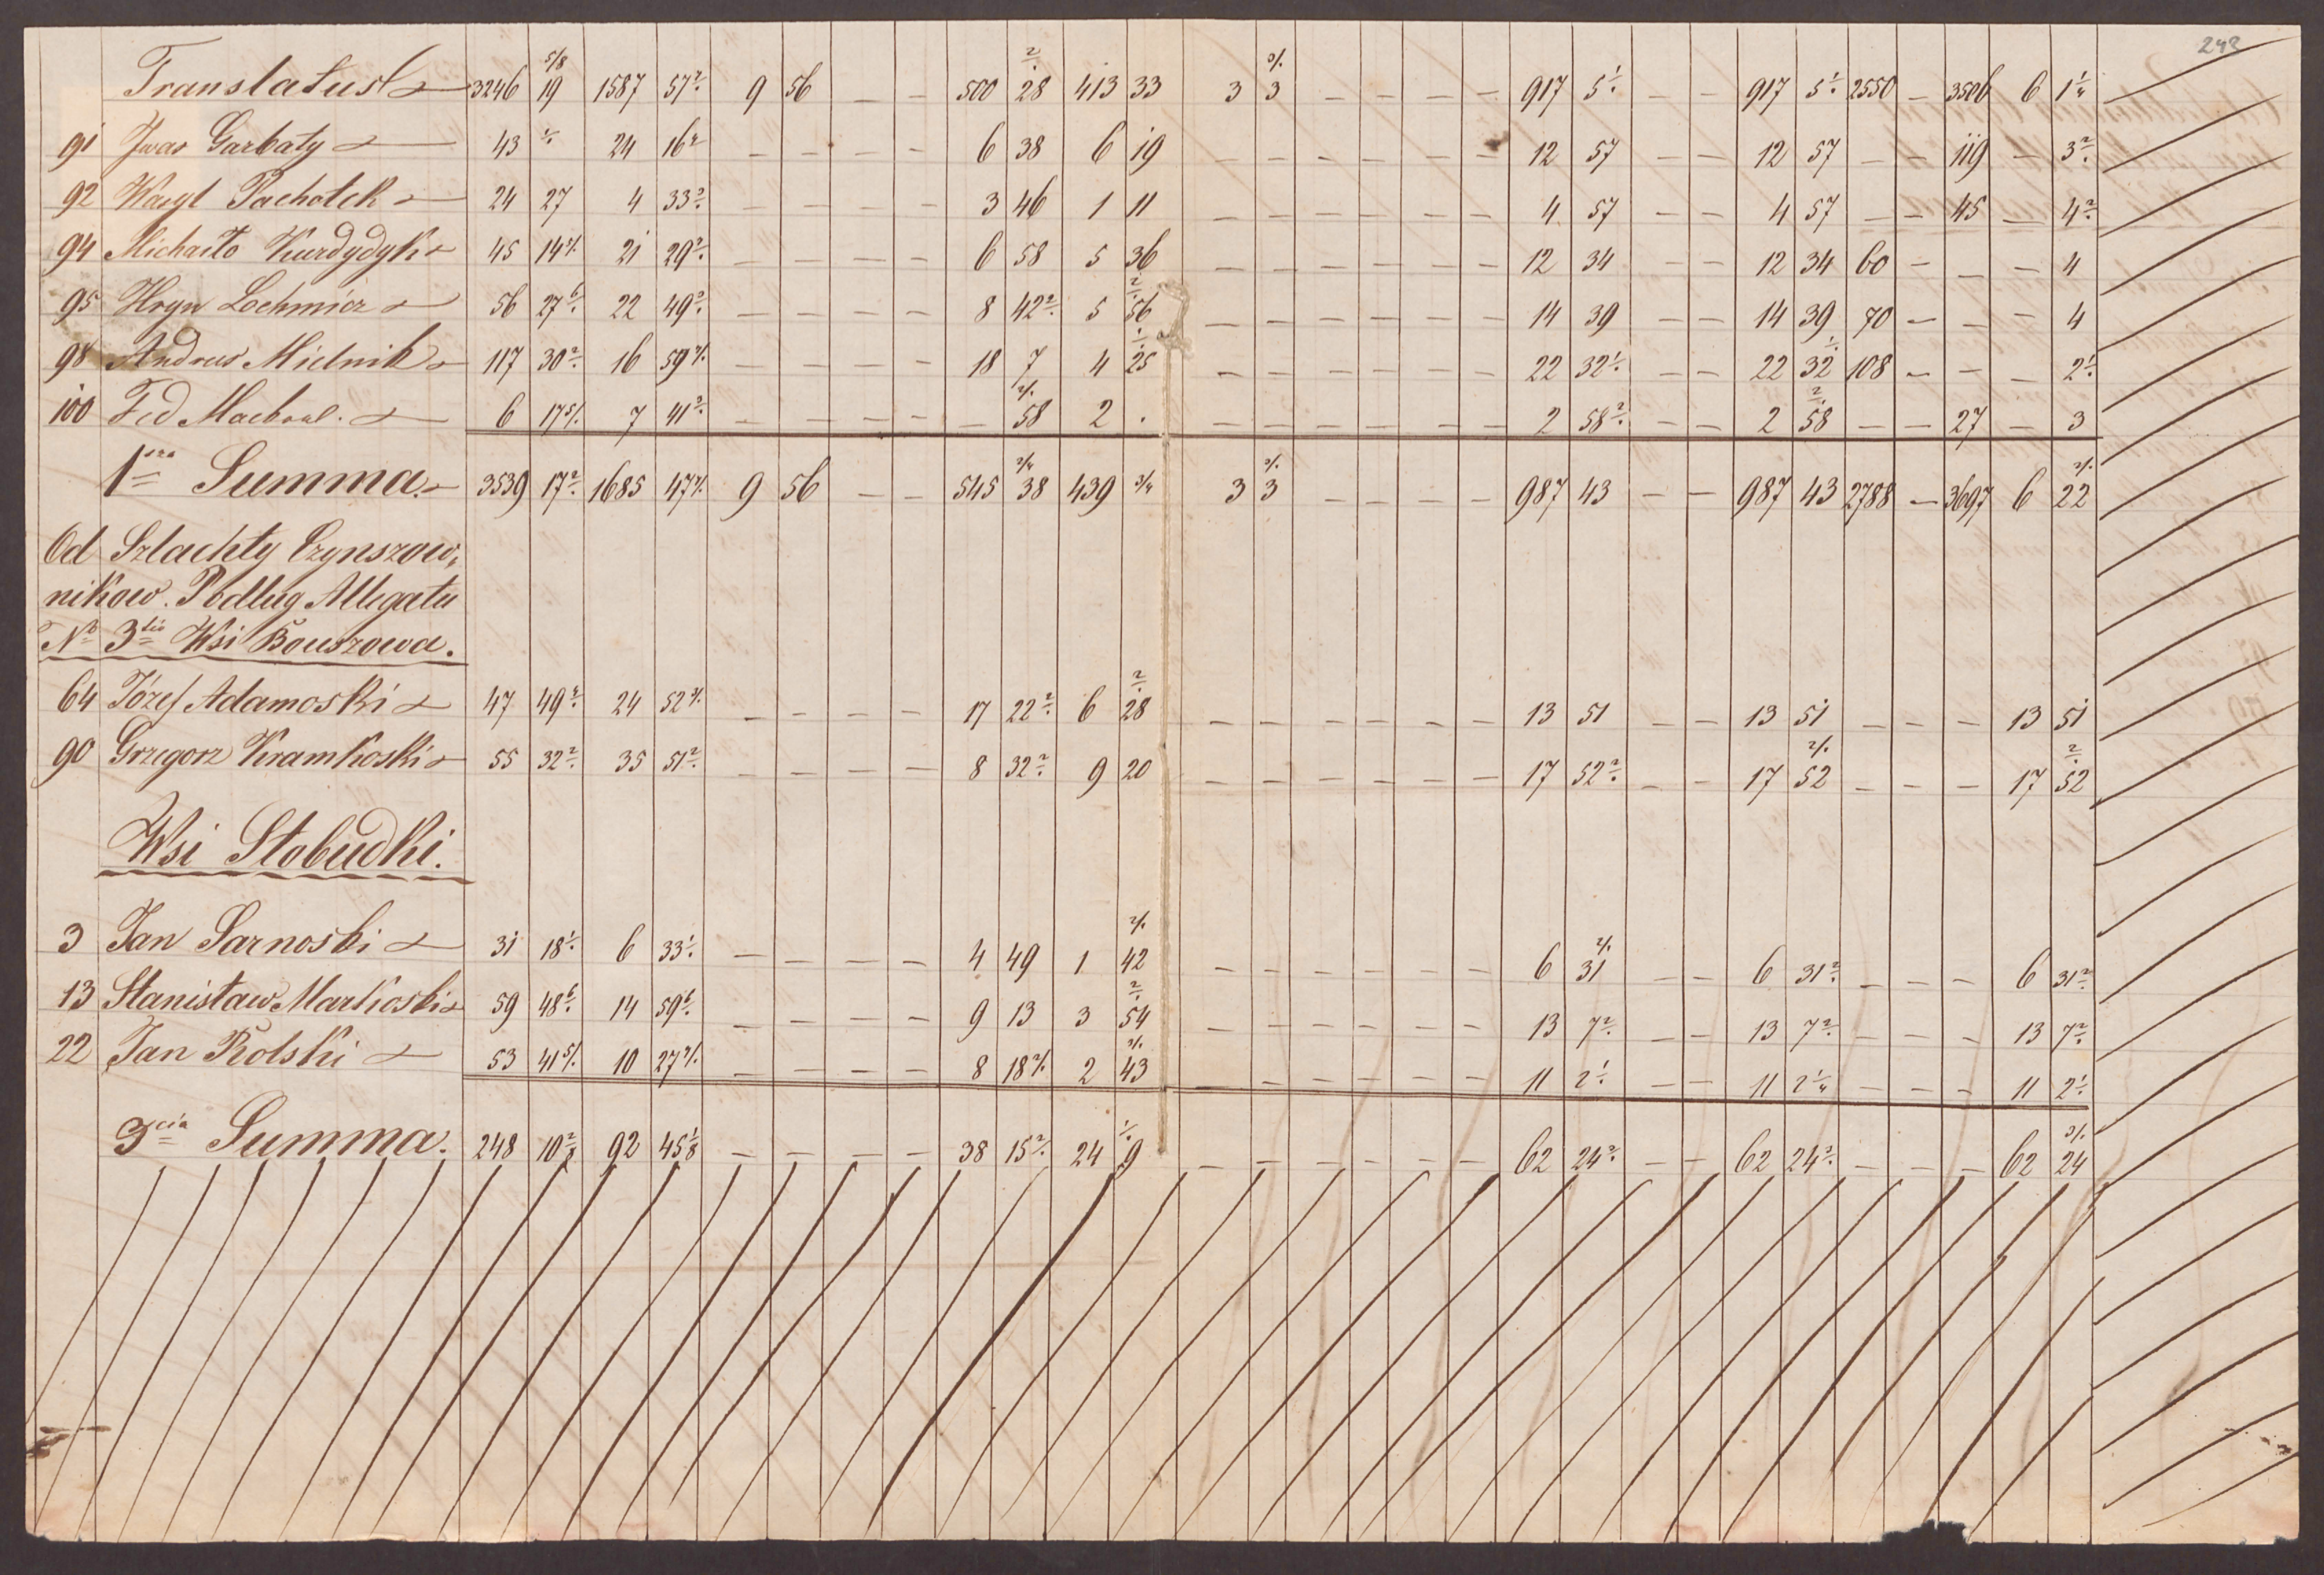 243
Translatus 3246 19 5/8 1587 57 2/. 9 56 — — 500 28 2/. 413 33 3 3 3/. — — — — 917 5 1/. — — 917 5 1/. 2550 — 3506 6 1 1/4
91 Iwas Garbaty 43 1/. 24 16 2 — — — — 6 38 6 19 — — — — — — 12 57 — — 12 57 — — 119 — 3 2/.
92 Wasyl Pacholek 24 27 4 33 2/. — — — — 3 46 1 11 — — — — — — 4 57 — — 4 57 — — 45 — 4 2/.
94 Michaiło Kurdydyk 45 14 2/. 21 29 2/. — — — — 6 58 5 36 — — — — — — 12 34 — — 12 34 60 — — — 4
95 Hryn Lochmicz 56 27 6/. 22 49 2/. — — — — 8 42 2/. 5 56 2/. — — — — — — 14 39 — — 14 39 70 — — — 4
98 Andrus Mielnik 117 30 2/. 16 59 2/. — — — — 18 7 4 25 1/. — — — — — — 22 32 1/. — — 22 32 1/. 108 — — — 2 1/.
100 Fed 6 17 5/. 7 41 2/. — — — — — 58 2/. 2 . — — — — — — 2 58 2/. — — 2 58 2/. — — 27 — 3
1sza Summa 3539 17 2/. 1685 47 2/. 9 56 — — 545 38 3/4 439 3/4 3 3 3/. — — — — 987 43 — — 987 43 2788 — 3697 6 22 2/.
Od Szlachty Czynszow,
nikow. Podług Allegatu
No 3tio Wsi Bouszowa.
64 Józef Adamoski 47 49 2/. 24 52 2/. — — — — 17 22 2/. 6 28 2/. — — — — — — 13 51 — — 13 51 — — — 13 51
90 Grzegorz Kramkoski 55 32 2/. 35 51 2/. — — — — 8 32 2/. 9 20 — — — — — — 17 52 2/. — — 17 52 2/. — — — 17 52 2/.
Wsi Słobudki.
3 Jan Sarnoski 31 18 1/. 6 33 1/. — — — — 4 49 1 42 2/. — — — — — — 6 31 2/. — — 6 31 2/. — — — 6 31 2/.
13 Stanisław Markoski 59 48 6/. 14 59 6/. — — — — 9 13 3 54 2/. — — — — — — 13 7 2/. — — 13 7 2/. — — — 13 7 2/.
22 Jan Rolski 53 41 5/. 10 27 2/. — — — — 8 18 2/. 2 43 2/. — — — — — — 11 2 1/. — — 11 2 1/4 — — — 11 2 1/.
3cia Summa. 248 10 2/8 92 45 1/8 — — — — 38 15 2/. 24 9 1/. — — — — — — 62 24 2/. — — 62 24 2/. — — — 62 24 3/.